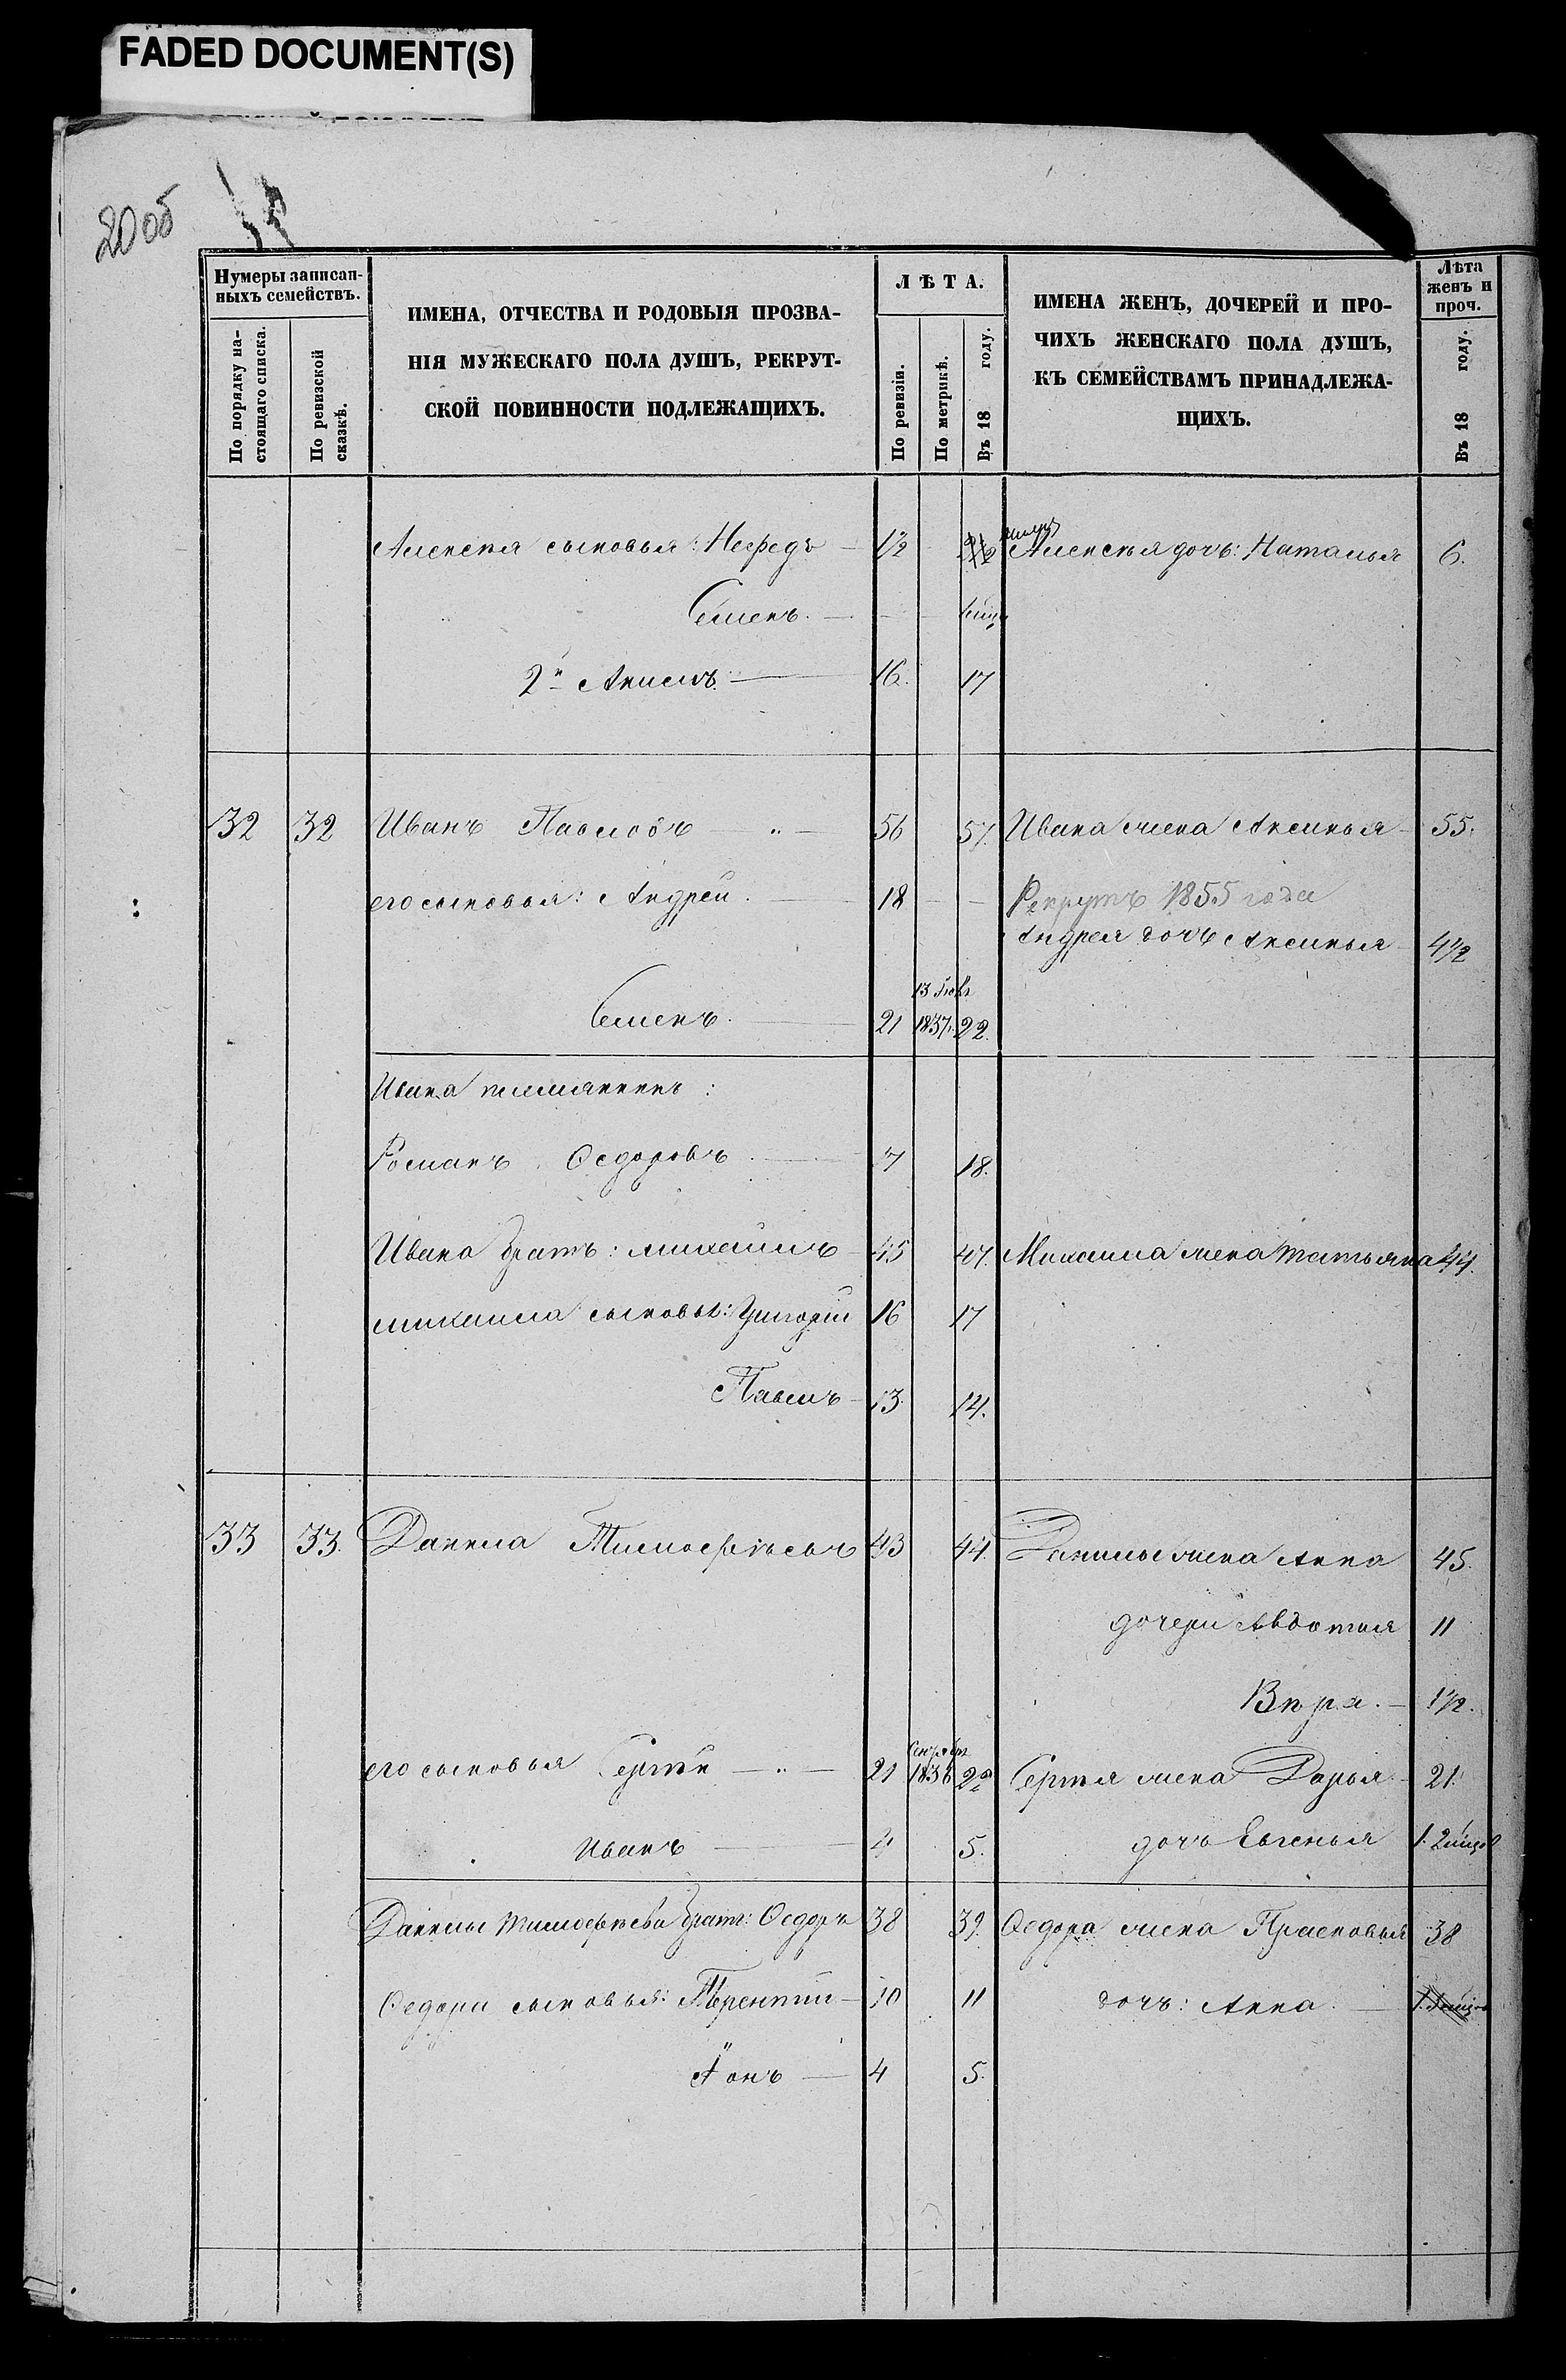 FADED DOCUMENT(S)
20 об
Нумеры записан-
ныхъ семействъ.
По порядку на-
стоящаго списка.
По ревизской
сказкѣ.
ИМЕНА, ОТЧЕСТВА И РОДОВЫЯ ПРОЗВА-
НІЯ МУЖЕСКАГО ПОЛА ДУШЪ, РЕКРУТ-
СКОЙ ПОВИННОСТИ ПОДЛЕЖАЩИХЪ.
ЛѢТА.
По ревизіи.
По метрикѣ.
Въ 18 году.
ИМЕНА ЖЕНЪ, ДОЧЕРЕЙ И ПРО-
ЧИХЪ ЖЕНСКАГО ПОЛА ДУШЪ,
КЪ СЕМЕЙСТВАМЪ ПРИНАДЛЕЖА-
ЩИХЪ.
Лѣта
женъ и
проч.
Въ 18 году.
Алексея сыновья: Нефедъ 1/2 Алексѣя дочь: Наталья 6.
Семенъ.
2й Акимъ 16. 17
32 32 Иванъ Павловъ 56 57. Ивана жена Аксинья 55.
его сыновья: Андрей. 18 Рекрутъ 1855 года
Андрея дочь Аксинья 4 1/2
Семенъ. 21 1837. 22.
Ивана племянникъ:
Романъ Федоровъ 7 18.
Ивана братъ: михаилъ 45 47. Михаила жена татьяна 44.
михаила сыновья: Григорій 16 17
Павелъ 13. 14.
33 33. Данила Тимофѣевъ 43 44. Данилы жена Анна 45.
дочери Авдотия 11
Вѣра. 1 1/2.
его сыновья Сергѣй 21 1836 22 Сергѣя жена Дарья 21.
Иванъ 4 5. дочь Евгенья 1. 2 мѣця
Данилы тимофѣева братъ: Федоръ 38 39. Федора жена Прасковья 38
Федора сыновья: Терентий 10 11 дочь: Анна.
Іонъ 4 5.